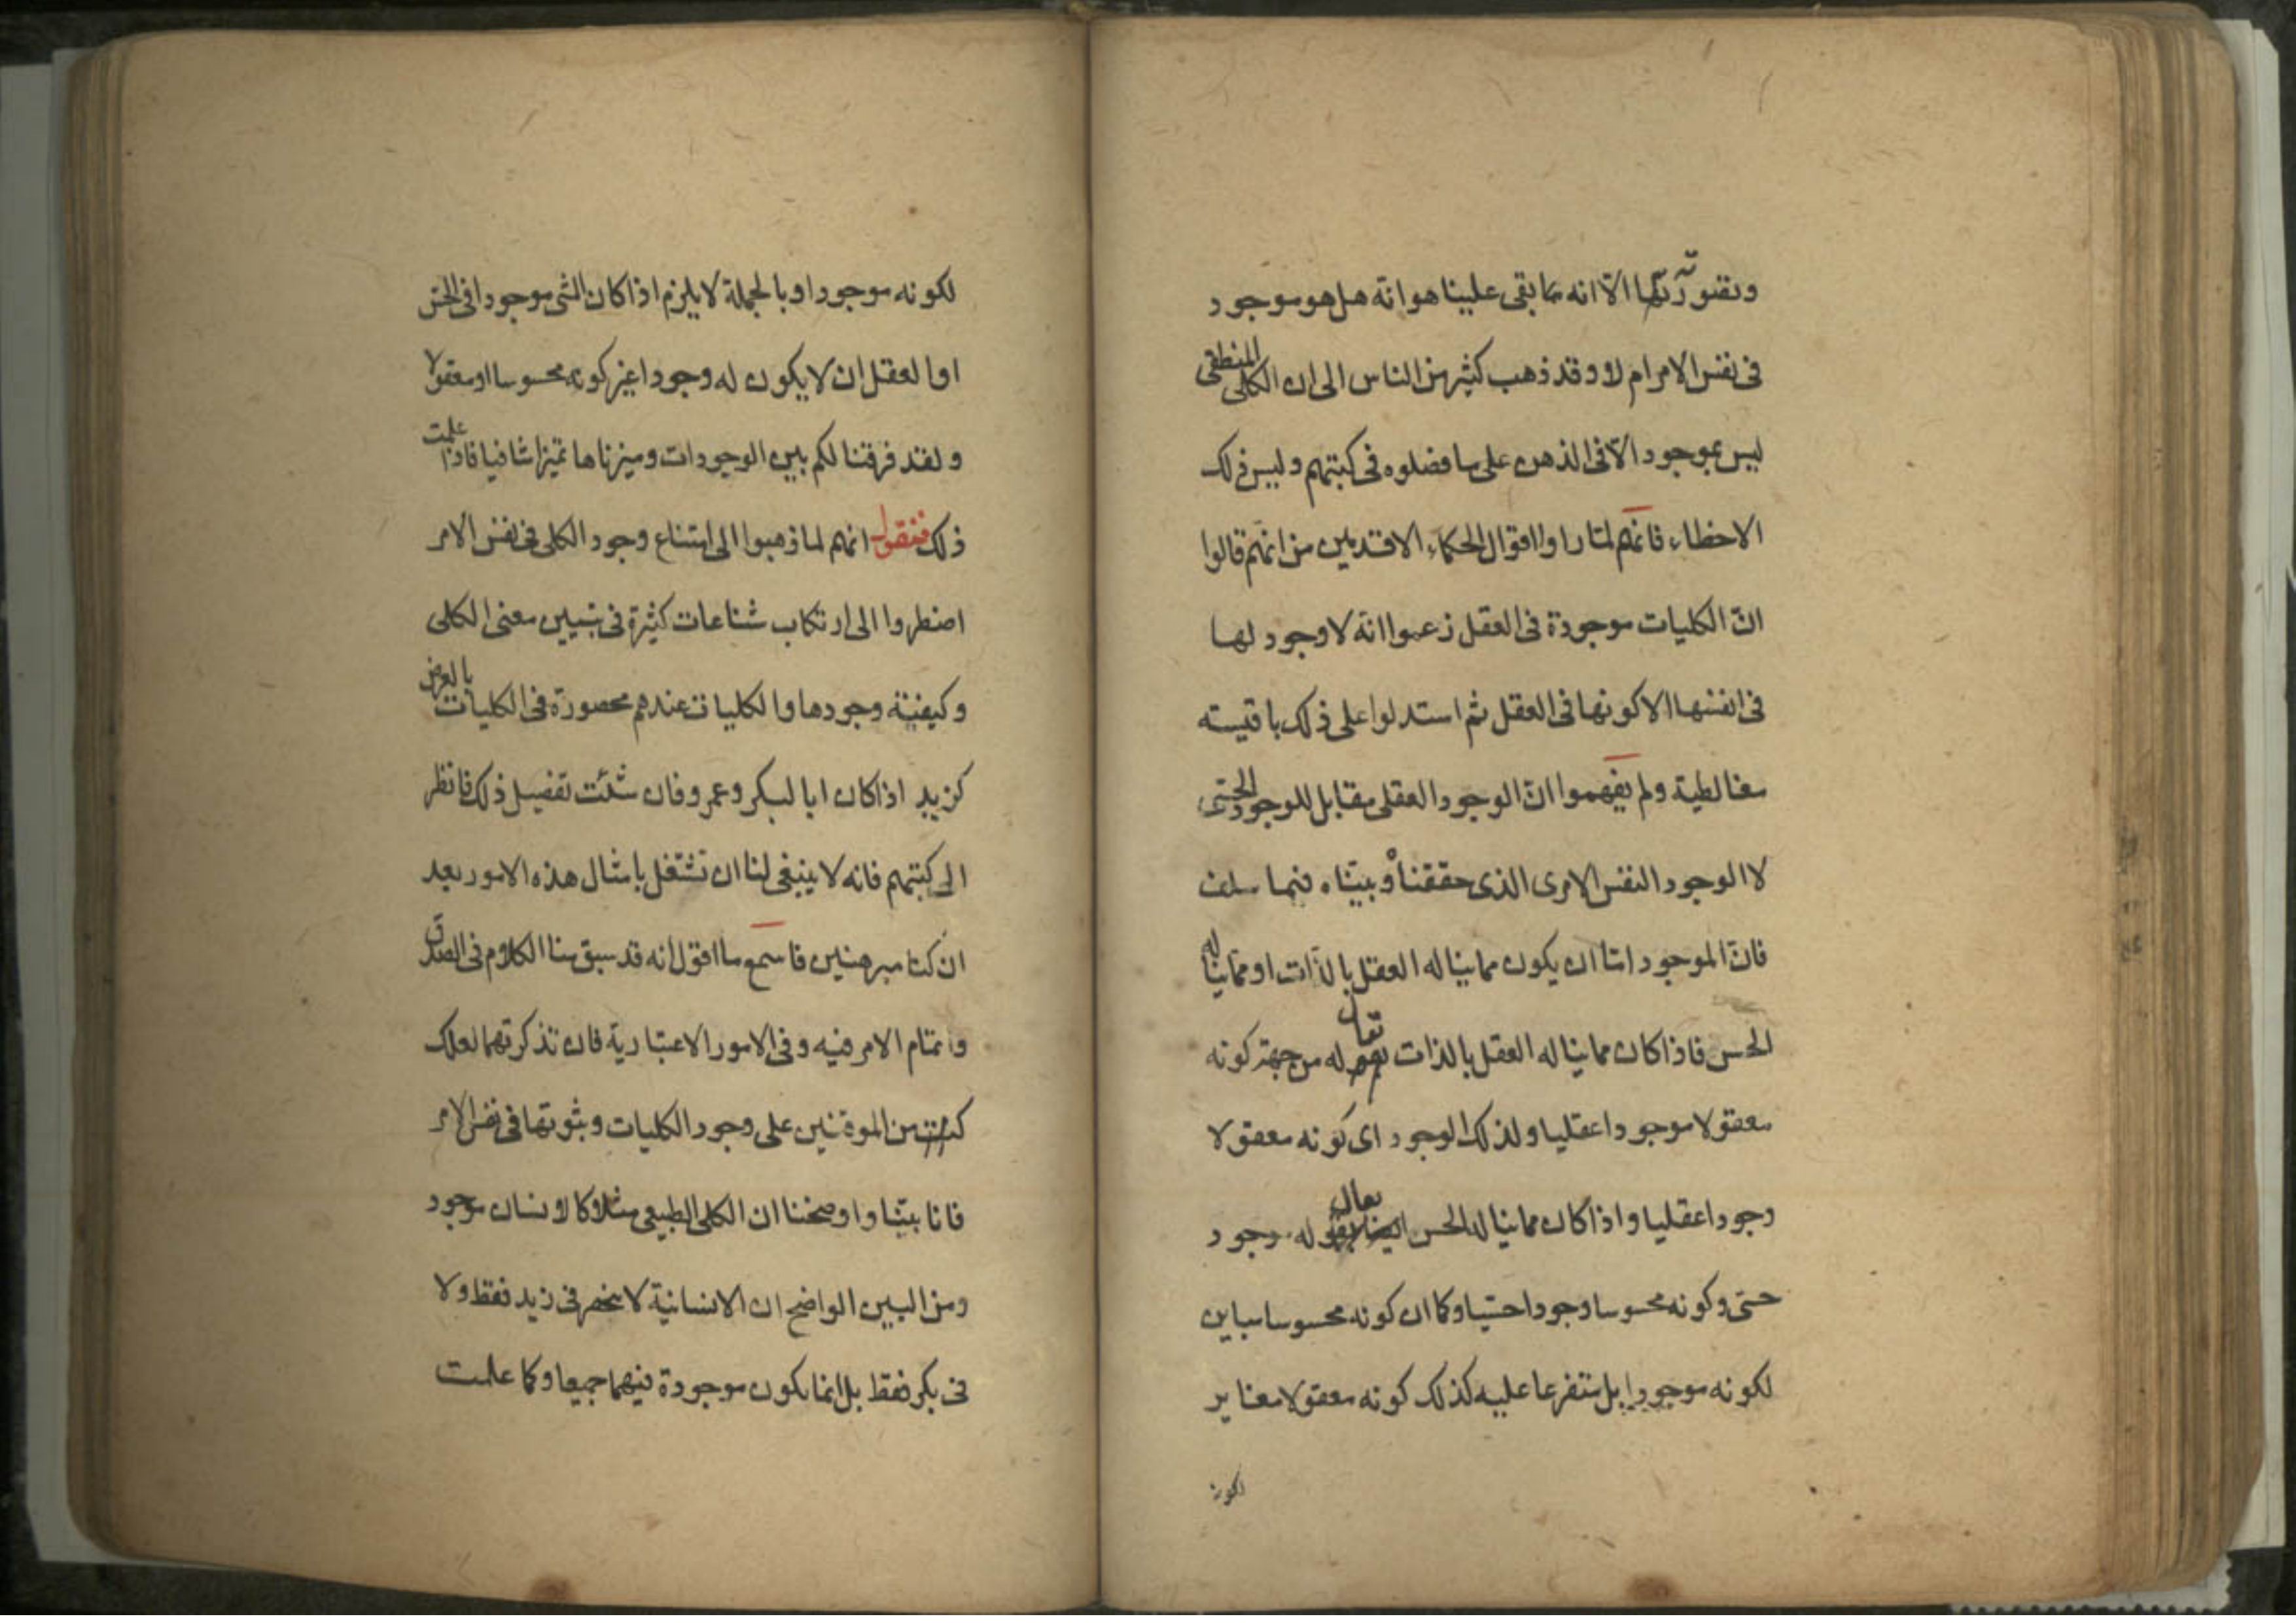 وتصورتها الّا انه مما بقى علينا هو انّه هل هو موجود
فى نفس الامر ام لا وقد ذهب كثير من الناس الى ان الكلى المنطقى
ليس بموجود الّا فى الذهن على ما فصلوه فى كتبهم وليس ذلك
الا خطاء فانّهم لمّا راوا اقوال الحكماء الاقدمين من انّهم قالوا
انّ الكليات موجودة فى العقل زعموا انّه لا وجود لها
فى انفسها الا كونها فى العقل ثم استدلوا على ذلك باقيسته
مغالطية ولم يفهموا انّ الوجود العقلى مقابل للوجود الحسّى
لا الوجود النفس الامرى الذى حققناه وبيّناه فيما سلف
فانّ الموجود امّا ان يكون مما يناله العقل بالذات او مما يناله
الحس فاذا كان مما يناله العقل بالذات يقال له من جهة كونه
معقولا موجودا عقليا ولذلك الوجود اى كونه معقولا
وجودا عقليا واذا كان مما يناله الحس يقال له وجود
حسّى وكونه محسوسا وجودا حسّيا وكما ان كونه محسوسا مباين
لكونه موجودا بل متفرعا عليه كذلك كونه معقولا مغاير
لكونه
لكونه موجودا وبالجملة لا يلزم اذا كان الشى موجودا فى الحس
او العقل ان لا يكون له وجود اغير كونه محسوسا او معقولا
ولقد فرقنا لكم بين الوجودات وميزناها تميزا شافيا فاذا علمت
ذلك فنقول انهم لما ذهبوا الى امتناع وجود الكلى فى نفس الامر
اضطروا الى ارتكاب شناعات كثيرة فى تبيين معنى الكلى
وكيفية وجودها والكليات عندهم محصورة فى الكليات بالعرض
كزيد اذا كان ابا لبكر وعمرو فان شئت تفصيل ذلك فانظر
الى كتبهم فانه لا ينبغى لنا ان نشتغل بامثال هذه الامور بعد
ان كنا مبرهنين فاسمع ما اقول انه قد سبق منا الكلام فى الصدق
وانتمام الامر فيه وفى الامور الاعتبارية فان تذكرتهما لعلك
كنت من الموقنين على وجود الكليات وثبوتها فى نفس الامر
فانا بيّنا واوضحنا ان الكلى الطبيعى مثلا كالانسان موجود
ومن البين الواضح ان الانسانية لا ينحصر فى زيد فقط ولا
فى بكر فقط بل انما يكون موجودة فيهما جميعا وكما علمت